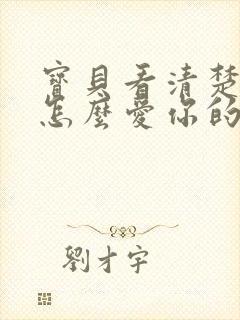 寶貝看清楚
怎麼愛你的
劉才宇